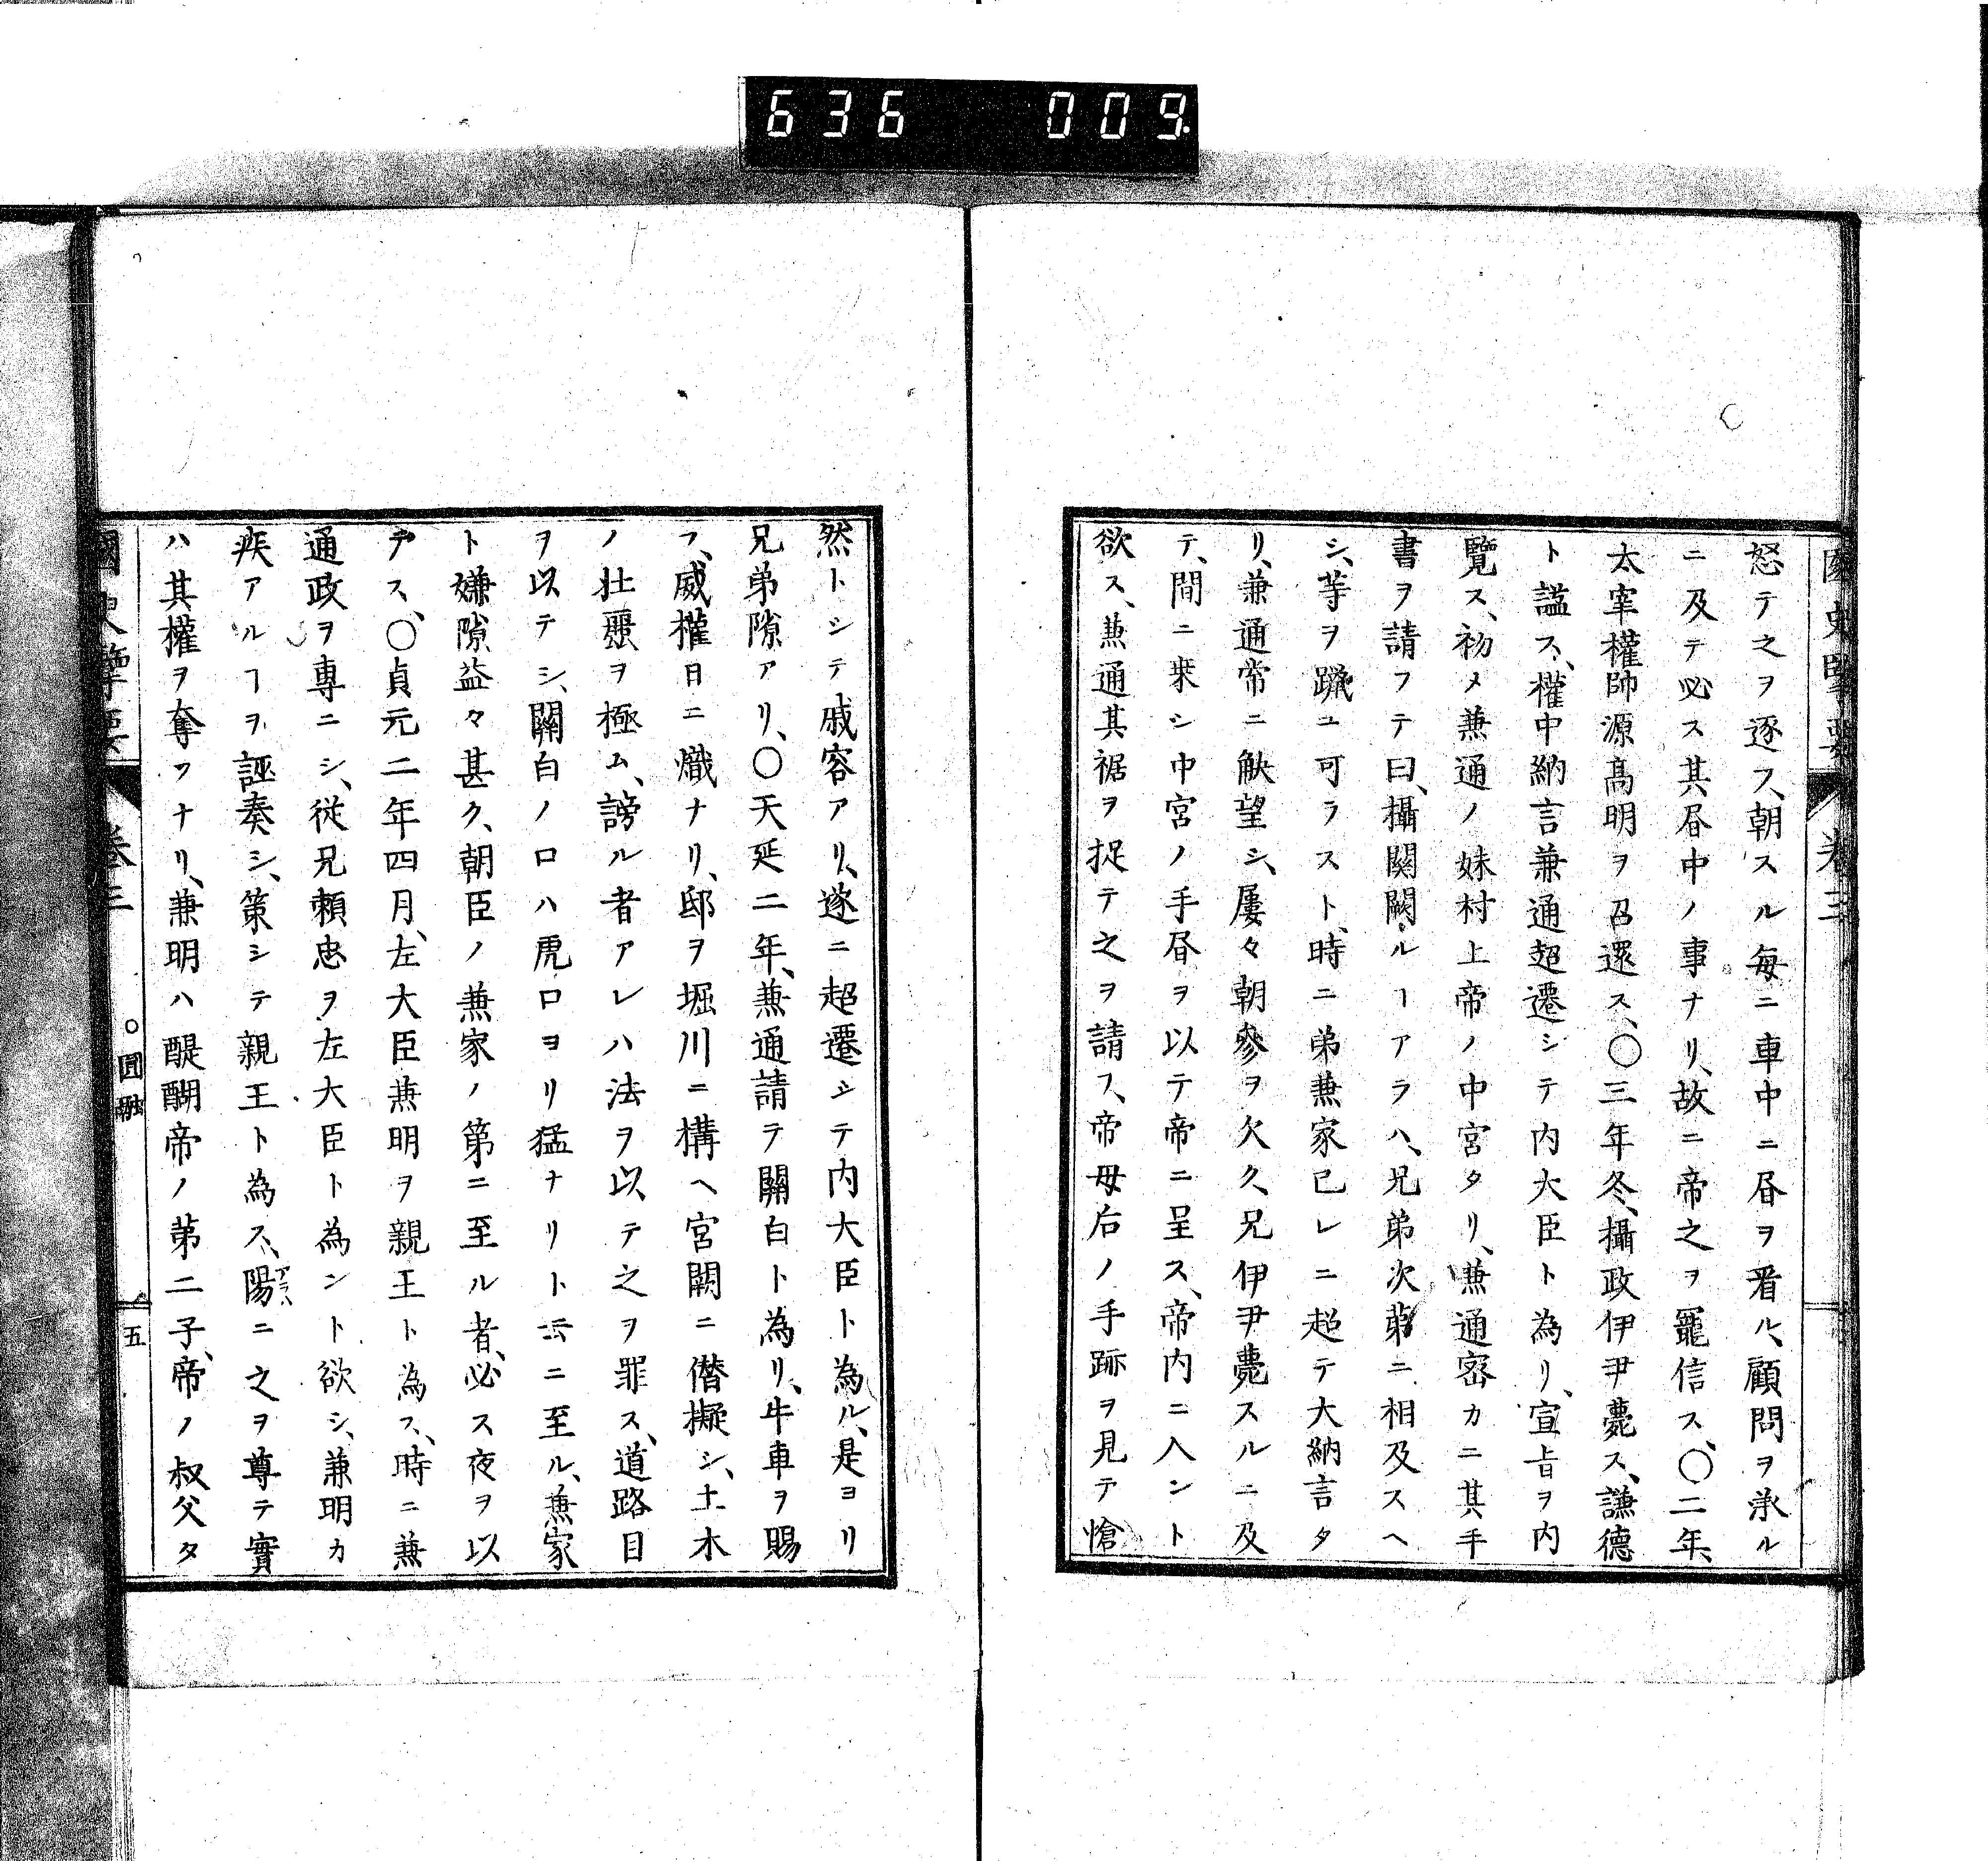 636 009
國史擥要 卷三
怒テ之ヲ逐フ、朝スル毎ニ車中ニ眉ヲ看ル、顧問ヲ承ル
ニ及テ必ス其眉中ノ事ナリ、故ニ帝之ヲ寵信ス、〇二年、
太宰權帥源髙明ヲ召還ス、〇三年冬、攝政伊尹薨ス、謙德
ト謚ス、權中納言兼通超遷シテ内大臣ト為リ、宣旨ヲ内
覽ス、初メ兼通ノ妹村上帝ノ中宮タリ、兼通密カニ其手
書ヲ請フテ曰、攝關闕ルヿアラハ、兄弟次第ニ相及スヘ
シ、等ヲ躐ユ可ラスト、時ニ弟兼家已レニ超テ大納言タ
リ、兼通常ニ觖望シ、屢々朝參ヲ欠ク、兄伊尹薨スルニ及
テ、間ニ椉シ中宮ノ手昏ヲ以テ帝ニ呈ス、帝内ニ入ント
欲ス、兼通其裾ヲ捉テ之ヲ請フ、帝母后ノ手跡ヲ見テ愴
然トシテ戚容アリ、遂ニ超遷シテ内大臣ト為ル、是ヨリ
兄弟隙アリ、〇天延二年、兼通請テ關白ト為リ、牛車ヲ賜
フ、威權日ニ熾ナリ、邸ヲ堀川ニ構ヘ宮闕ニ僭擬シ、土木
ノ壮麗ヲ極ム、謗ル者アレハ法ヲ以テ之ヲ罪ス、道路目
ヲ以テシ、關白ノ口ハ虎口ヨリ猛ナリト云ニ至ル、兼家
ト嫌隙益々甚ク、朝臣ノ兼家ノ第ニ至ル者、必ス夜ヲ以
テス、〇貞元二年四月、左大臣兼明ヲ親王ト為ス、時ニ兼
通政ヲ專ニシ、從兄賴忠ヲ左大臣ト為ント欲シ、兼明カ
疾アルヿヲ誣奏シ、策シテ親王ト為ス、陽アラハニ之ヲ尊テ實
ハ其權ヲ奪フナリ、兼明ハ醍醐帝ノ第二子、帝ノ叔父タ
國史擥要 卷三 〇圓融 五